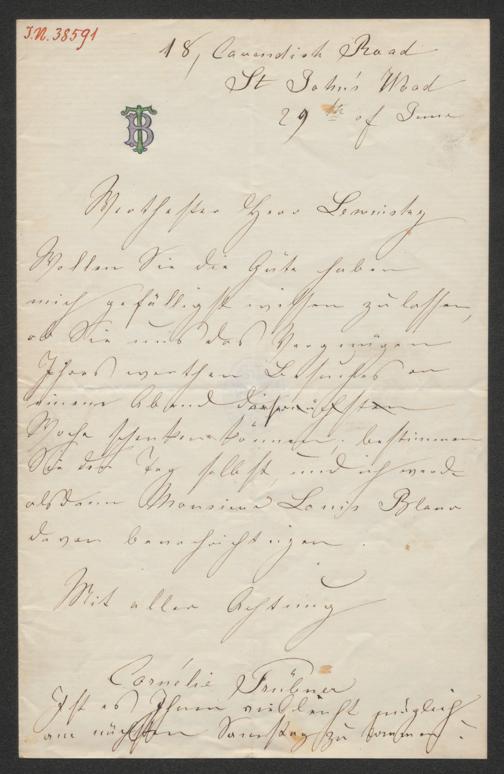 J.N. 38591
18, Cavendish Road
St John's Wood
29th of June
TB
Werthester Herr Lewinsky
Wollen Sie die Güte haben
mich gefälligst wissen zu lassen,
ob Sie uns das Vergnügen
Ihres werthen Besuches an
einem Abend
Woche schenken können; bestimmen
Sie den Tag selbst, und ich werde
alsdann Monsieur Louis Blanc
davon benachrichtigen.
Mit aller Achtung
Cornélie Trübner
Ist es Ihnen vielleicht möglich
am nächsten Samstag zu kommen?